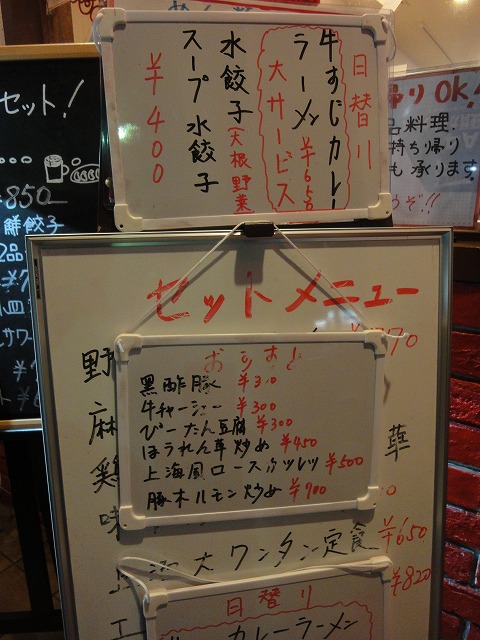 日替り
牛すじカレー
ラーメン ¥650
大サービス
水餃子(大根野菜
スープ水餃子
¥400
セット!
¥850
餅餃子
帰りOK!
品料理
持ち帰り
も承ります
ぞ!!
セットメニュー
おすすめ
黒酢豚 ¥310
牛チャーシュー ¥300
ぴーたん豆腐 ¥300
ほうれん草炒め ¥450
上海風ロースカツレツ ¥500
豚ホルモン炒め ¥700
野
麻
鶏
味
華
大ワンタン定食 ¥650
¥820
日替り
カレーラーメン